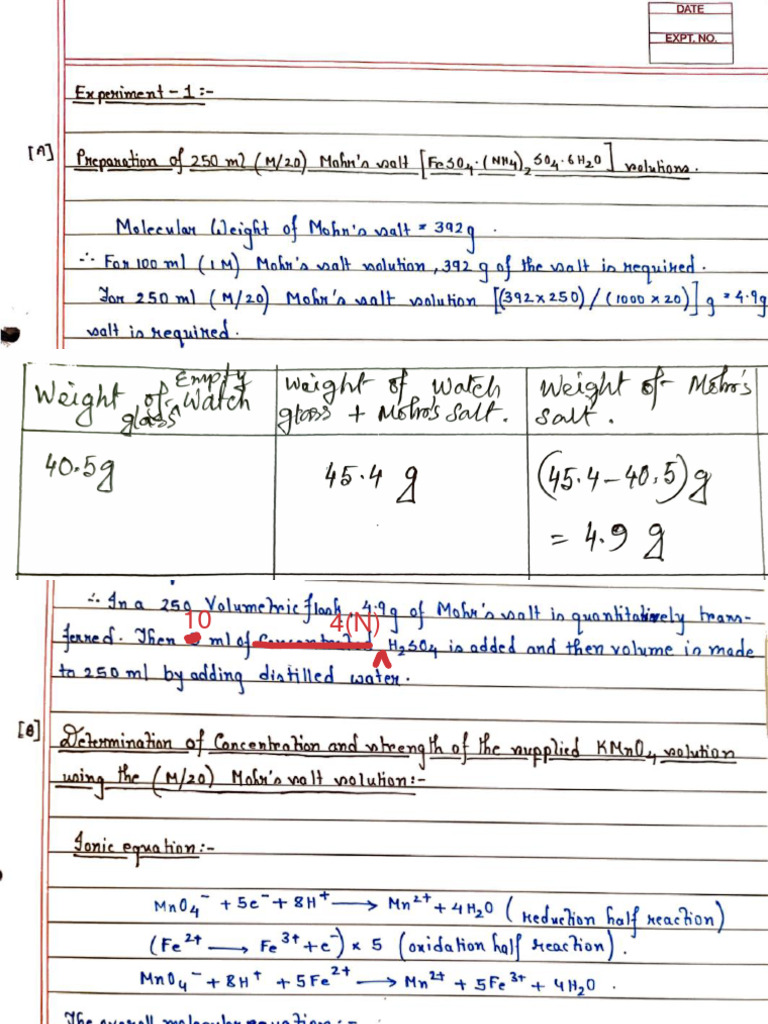 DATE
EXPT. NO.
Experiment-1:-
[A] Preparation of 250 ml (M/20) Mohr's salt [FeSO4.(NH4)2SO4.6H2O] solutions.
Molecular Weight of Mohr's salt = 392g.
∴ For 100 ml (1M) Mohr's salt solution, 392 g of the salt is required.
For 250 ml (M/20) Mohr's salt solution [(392×250)/(1000×20)]g = 4.9g
salt is required.
Weight of Empty Watch glass
Weight of Watch glass + Mohr's Salt.
Weight of Mohr's Salt.
40.5g
45.4 g
(45.4-40.5)g
= 4.9 g
∴ In a 250 Volumetric flask, 4.9g of Mohr's salt is quantitatively trans-
10 4(N)
ferred. Then ml of H2SO4 is added and then volume is made
to 250 ml by adding distilled water.
[B] Determination of Concentration and strength of the supplied KMnO4 solution
using the (M/20) Mohr's salt solution:-
Ionic equation:-
MnO4⁻ + 5e⁻ + 8H⁺ → Mn²⁺ + 4H2O (reduction half reaction)
(Fe²⁺ → Fe³⁺ + e⁻) × 5 (oxidation half reaction).
MnO4⁻ + 8H⁺ + 5Fe²⁺ → Mn²⁺ + 5Fe³⁺ + 4H2O.
The overall molecular equation:-